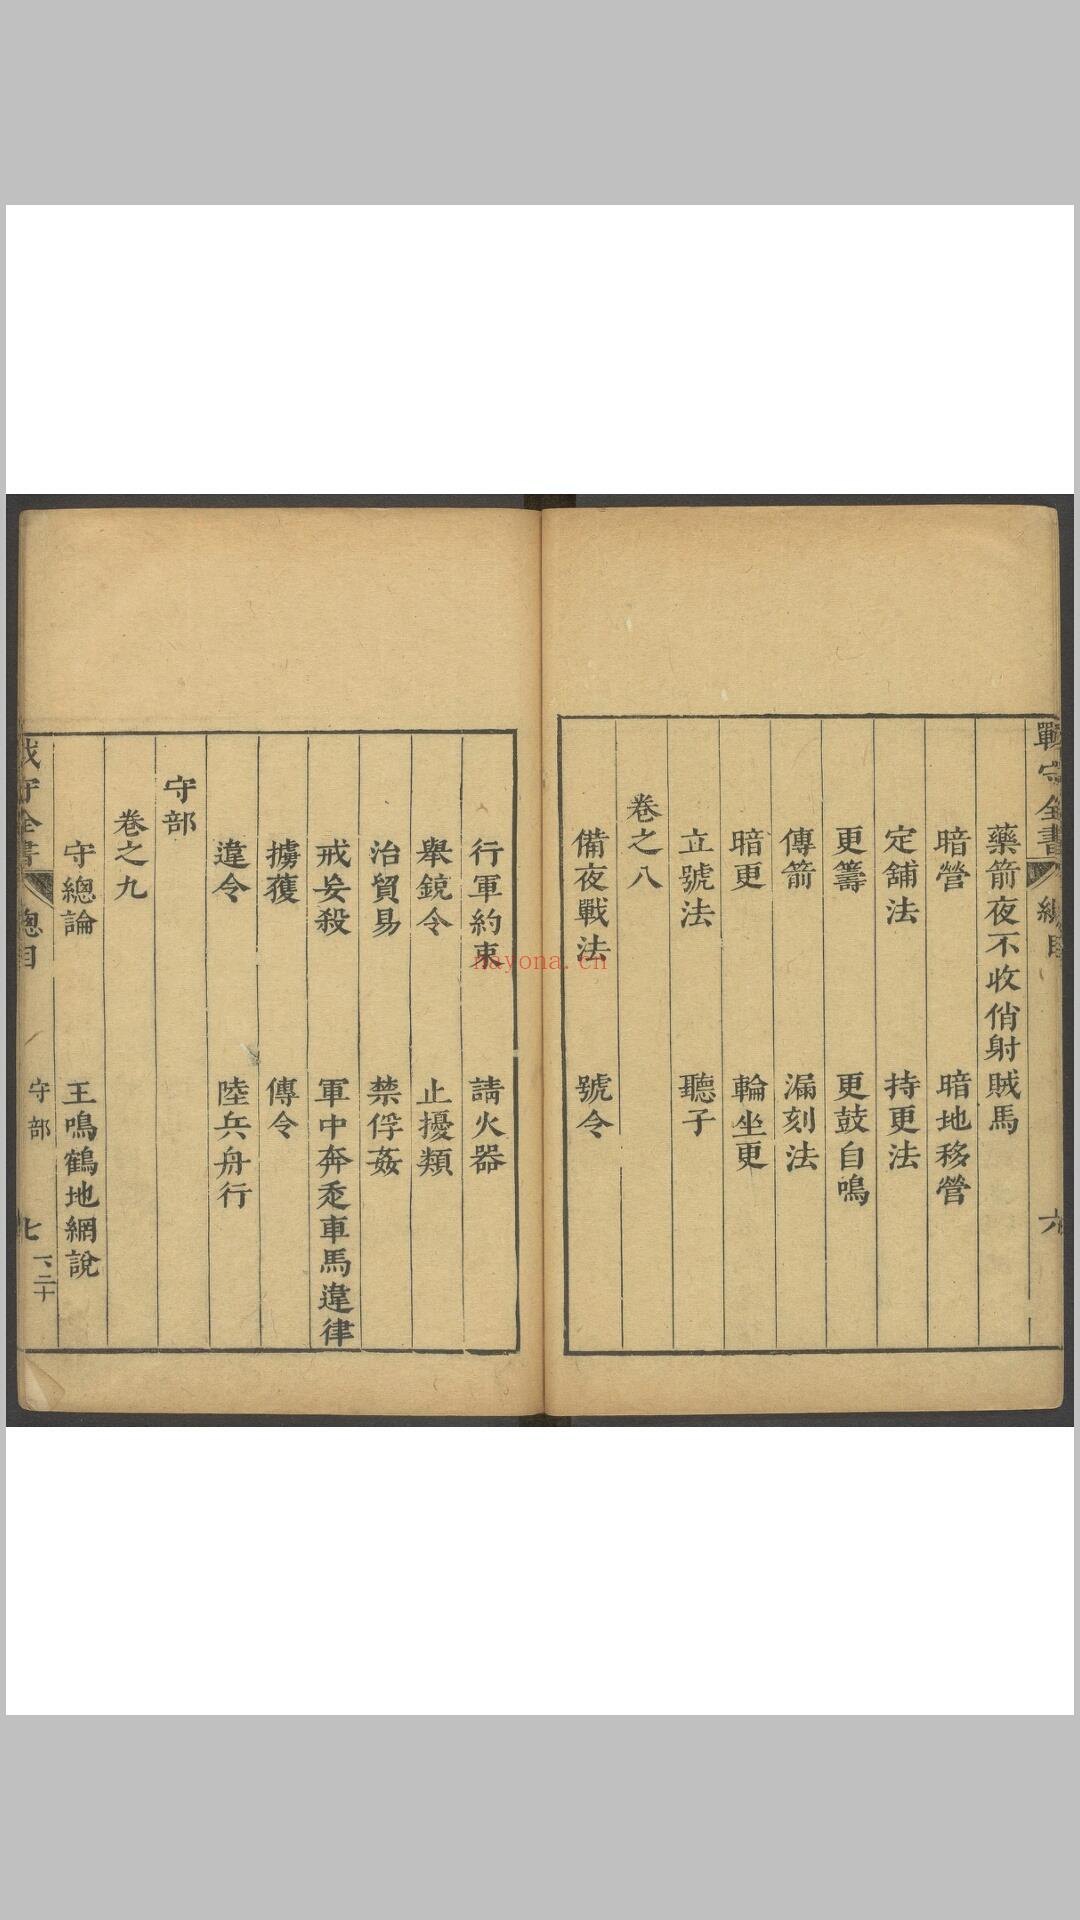 戰守全書 總目 六
藥箭夜不收俏射賊馬
暗營 暗地移營
定舖法 持更法
更籌 更鼓自鳴
傳箭 漏刻法
暗更 輪坐更
立號法 聽子
卷之八
備夜戰法 號令
行軍約束 請火器
舉鏡令 止擾類
治貿易 禁俘姦
戒妄殺 軍中奔走車馬違律
擄獲 傳令
違令 陸兵舟行
守部
卷之九
守總論 王鳴鶴地網說
戰守全書 總目 守部 七
nayona.cn